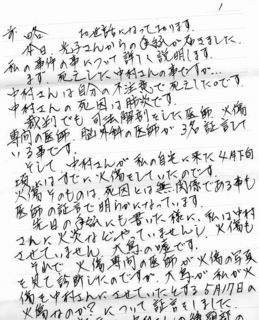 1
前略 お世話になっております。
本日、光子さんからの手紙が届きました。
私の事件の事について詳しく説明します。
まず、死亡した中村さんの事ですが…
中村さんは自分の不注意で死亡したのです。
中村さんの死因は肺炎です。
裁判でも司法解剖をした医師、火傷
専門の医師、脳外科の医師が3名証言して
いる事です。
そして中村さんが私の自宅に来た4月下旬
頃にはすでに火傷をしていたのです。
火傷そのものは死因とは無関係である事も
医師の証言で明らかになっています。
先日の手紙にも書いた様に、私は中村
さんに火傷などやっていませんし、火傷も
させていません。大島の嘘です。
それで火傷専門の医師が火傷の写真
を見て診断したのですが、大島が私が火
傷を中村さんにさせていたとする5月17日の
火傷なのか?について証言をしました。